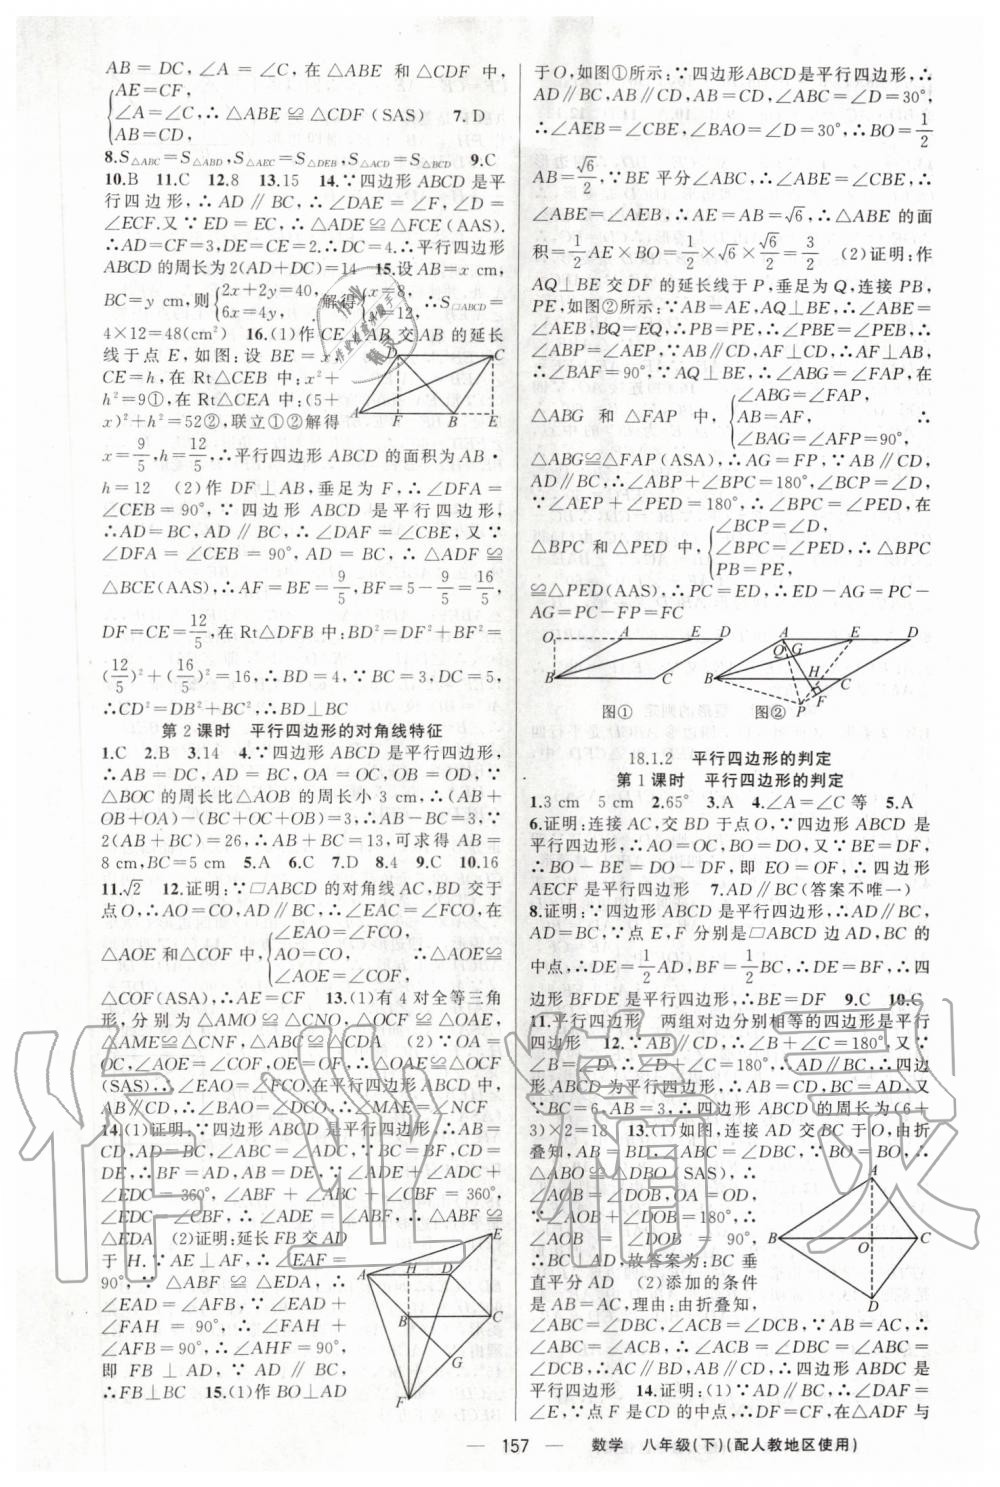 AB=DC,∠A=∠C,在△ABE 和△CDF 中,
{AE=CF,
∠A=∠C,∴△ABE≌△CDF(SAS) 7.D
AB=CD,
8.S△ABC=S△ABD,S△AEC=S△DEB,S△ACD=S△BCD 9.C
10.B 11.C 12.8 13.15 14.∵四边形 ABCD 是平
行四边形,∴AD∥BC,∴∠DAE=∠F,∠D=
∠ECF.又∵ED=EC,∴△ADE≌△FCE(AAS).
∴AD=CF=3,DE=CE=2.∴DC=4.∴平行四边形
ABCD 的周长为 2(AD+DC)=14 15.设 AB=x cm,
BC=y cm,则{2x+2y=40,6x=4y, 解得{x=8,y=12, ∴S□ABCD=
4×12=48(cm²) 16.(1)作 CE⊥AB 交 AB 的延长
线于点 E,如图:设 BE=x,
CE=h,在 Rt△CEB 中:x²+
h²=9①,在 Rt△CEA 中:(5+
x)²+h²=52②,联立①②解得
x=9/5,h=12/5,∴平行四边形 ABCD 的面积为 AB·
h=12 (2)作 DF⊥AB,垂足为 F,∴∠DFA=
∠CEB=90°,∵四边形 ABCD 是平行四边形,
∴AD=BC,AD∥BC,∴∠DAF=∠CBE,又∵
∠DFA=∠CEB=90°,AD=BC,∴△ADF≌
△BCE(AAS),∴AF=BE=9/5,BF=5-9/5=16/5,
DF=CE=12/5,在 Rt△DFB 中:BD²=DF²+BF²=
(12/5)²+(16/5)²=16,∴BD=4,∵BC=3,DC=5,
∴CD²=DB²+BC²,∴BD⊥BC
第 2 课时 平行四边形的对角线特征
1.C 2.B 3.14 4.∵四边形 ABCD 是平行四边形,
∴AB=DC,AD=BC,OA=OC,OB=OD.∵
△BOC 的周长比△AOB 的周长小 3 cm,∴(AB+
OB+OA)-(BC+OC+OB)=3,∴AB-BC=3,∵
2(AB+BC)=26,∴AB+BC=13,可求得 AB=
8 cm,BC=5 cm 5.A 6.C 7.D 8.4 9.C 10.16
11.√2 12.证明:∵□ABCD 的对角线 AC,BD 交于
点 O,∴AO=CO,AD∥BC,∴∠EAC=∠FCO,在
△AOE 和△COF 中,{∠EAO=∠FCO, AO=CO, ∠AOE=∠COF, ∴△AOE≌
△COF(ASA),∴AE=CF 13.(1)有 4 对全等三角
形,分别为△AMO≌△CNO,△OCF≌△OAE,
△AME≌△CNF,△ABC≌△CDA (2)∵OA=
OC,∠AOE=∠COF,OE=OF,∴△OAE≌△OCF
(SAS),∴∠EAO=∠FCO.在平行四边形 ABCD 中,
AB∥CD,∴∠BAO=∠DCO,∴∠MAE=∠NCF
14.(1)证明:∵四边形 ABCD 是平行四边形,∴AB=
CD,AD=BC,∠ABC=∠ADC,∵BF=BC,CD=
DE,∴BF=AD,AB=DE.∵∠ADE+∠ADC+
∠EDC=360°,∠ABF+∠ABC+∠CBF=360°,
∠EDC=∠CBF,∴∠ADE=∠ABF,∴△ABF≌
△EDA (2)证明:延长 FB 交 AD
于 H.∵AE⊥AF,∴∠EAF=
90°,∵△ABF≌△EDA,∴
∠EAD=∠AFB,∵∠EAD+
∠FAH=90°,∴∠FAH+
∠AFB=90°,∴∠AHF=90°,
即 FB⊥AD,∵AD∥BC,
∴FB⊥BC 15.(1)作 BO⊥AD
于 O,如图①所示:∵四边形 ABCD 是平行四边形,∴
AD∥BC,AB∥CD,AB=CD,∠ABC=∠D=30°,
∴∠AEB=∠CBE,∠BAO=∠D=30°,∴BO=1/2
AB=√6/2,∵BE 平分∠ABC,∴∠ABE=∠CBE,∴
∠ABE=∠AEB,∴AE=AB=√6,∴△ABE 的面
积=1/2AE×BO=1/2×√6×√6/2=3/2 (2)证明:作
AQ⊥BE 交 DF 的延长线于 P,垂足为 Q,连接 PB,
PE,如图②所示:∵AB=AE,AQ⊥BE,∴∠ABE=
∠AEB,BQ=EQ,∴PB=PE,∴∠PBE=∠PEB,∴
∠ABP=∠AEP,∵AB∥CD,AF⊥CD,∴AF⊥AB,
∴∠BAF=90°,∵AQ⊥BE,∴∠ABG=∠FAP,在
△ABG 和△FAP 中,{∠ABG=∠FAP, AB=AF, ∠BAG=∠AFP=90°, ∴
△ABG≌△FAP(ASA),∴AG=FP,∵AB∥CD,
AD∥BC,∴∠ABP+∠BPC=180°,∠BCP=∠D,
∵∠AEP+∠PED=180°,∴∠BPC=∠PED,在
△BPC 和△PED 中,{∠BCP=∠D, ∠BPC=∠PED, PB=PE, ∴△BPC
≌△PED(AAS),∴PC=ED,∴ED-AG=PC-
AG=PC-FP=FC
图① 图②
18.1.2 平行四边形的判定
第 1 课时 平行四边形的判定
1.3 cm 5 cm 2.65° 3.A 4.∠A=∠C 等 5.A
6.证明:连接 AC,交 BD 于点 O,∵四边形 ABCD 是
平行四边形,∴AO=OC,BO=DO,又∵BE=DF,
∴BO-BE=DO-DF,即 EO=OF,∴四边形
AECF 是平行四边形 7.AD∥BC(答案不唯一)
8.证明:∵四边形 ABCD 是平行四边形,∴AD∥BC,
AD=BC,∵点 E,F 分别是□ABCD 边 AD,BC 的
中点,∴DE=1/2AD,BF=1/2BC,∴DE=BF,∴四
边形 BFDE 是平行四边形,∴BE=DF 9.C 10.C
11.平行四边形 两组对边分别相等的四边形是平行
四边形 12.∵AB∥CD,∴∠B+∠C=180°,又∵
∠B=∠D,∴∠D+∠C=180°,∴AD∥BC,∴四边
形 ABCD 为平行四边形,∴AB=CD,BC=AD,又
∵BC=6,AB=3,∴四边形 ABCD 的周长为(6+
3)×2=18 13.(1)如图,连接 AD 交 BC 于 O,由折
叠知,AB=BD,∠ABC=∠DBC,∵BO=BO,∴
△ABO≌△DBO(SAS),∴
∠AOB=∠DOB,OA=OD,
∵∠AOB+∠DOB=180°,∴
∠AOB=∠DOB=90°,∴
BC⊥AD,故答案为:BC 垂
直平分 AD (2)添加的条件
是 AB=AC,理由:由折叠知,
∠ABC=∠DBC,∠ACB=∠DCB,∵AB=AC,∴
∠ABC=∠ACB,∴∠ACB=∠DBC,∠ABC=
∠DCB,∴AC∥BD,AB∥CD,∴四边形 ABDC 是
平行四边形 14.证明:(1)∵AD∥BC,∴∠DAF=
∠E,∵点 F 是 CD 的中点,∴DF=CF,在△ADF 与
— 157 — 数学 八年级(下)(配人教地区使用)